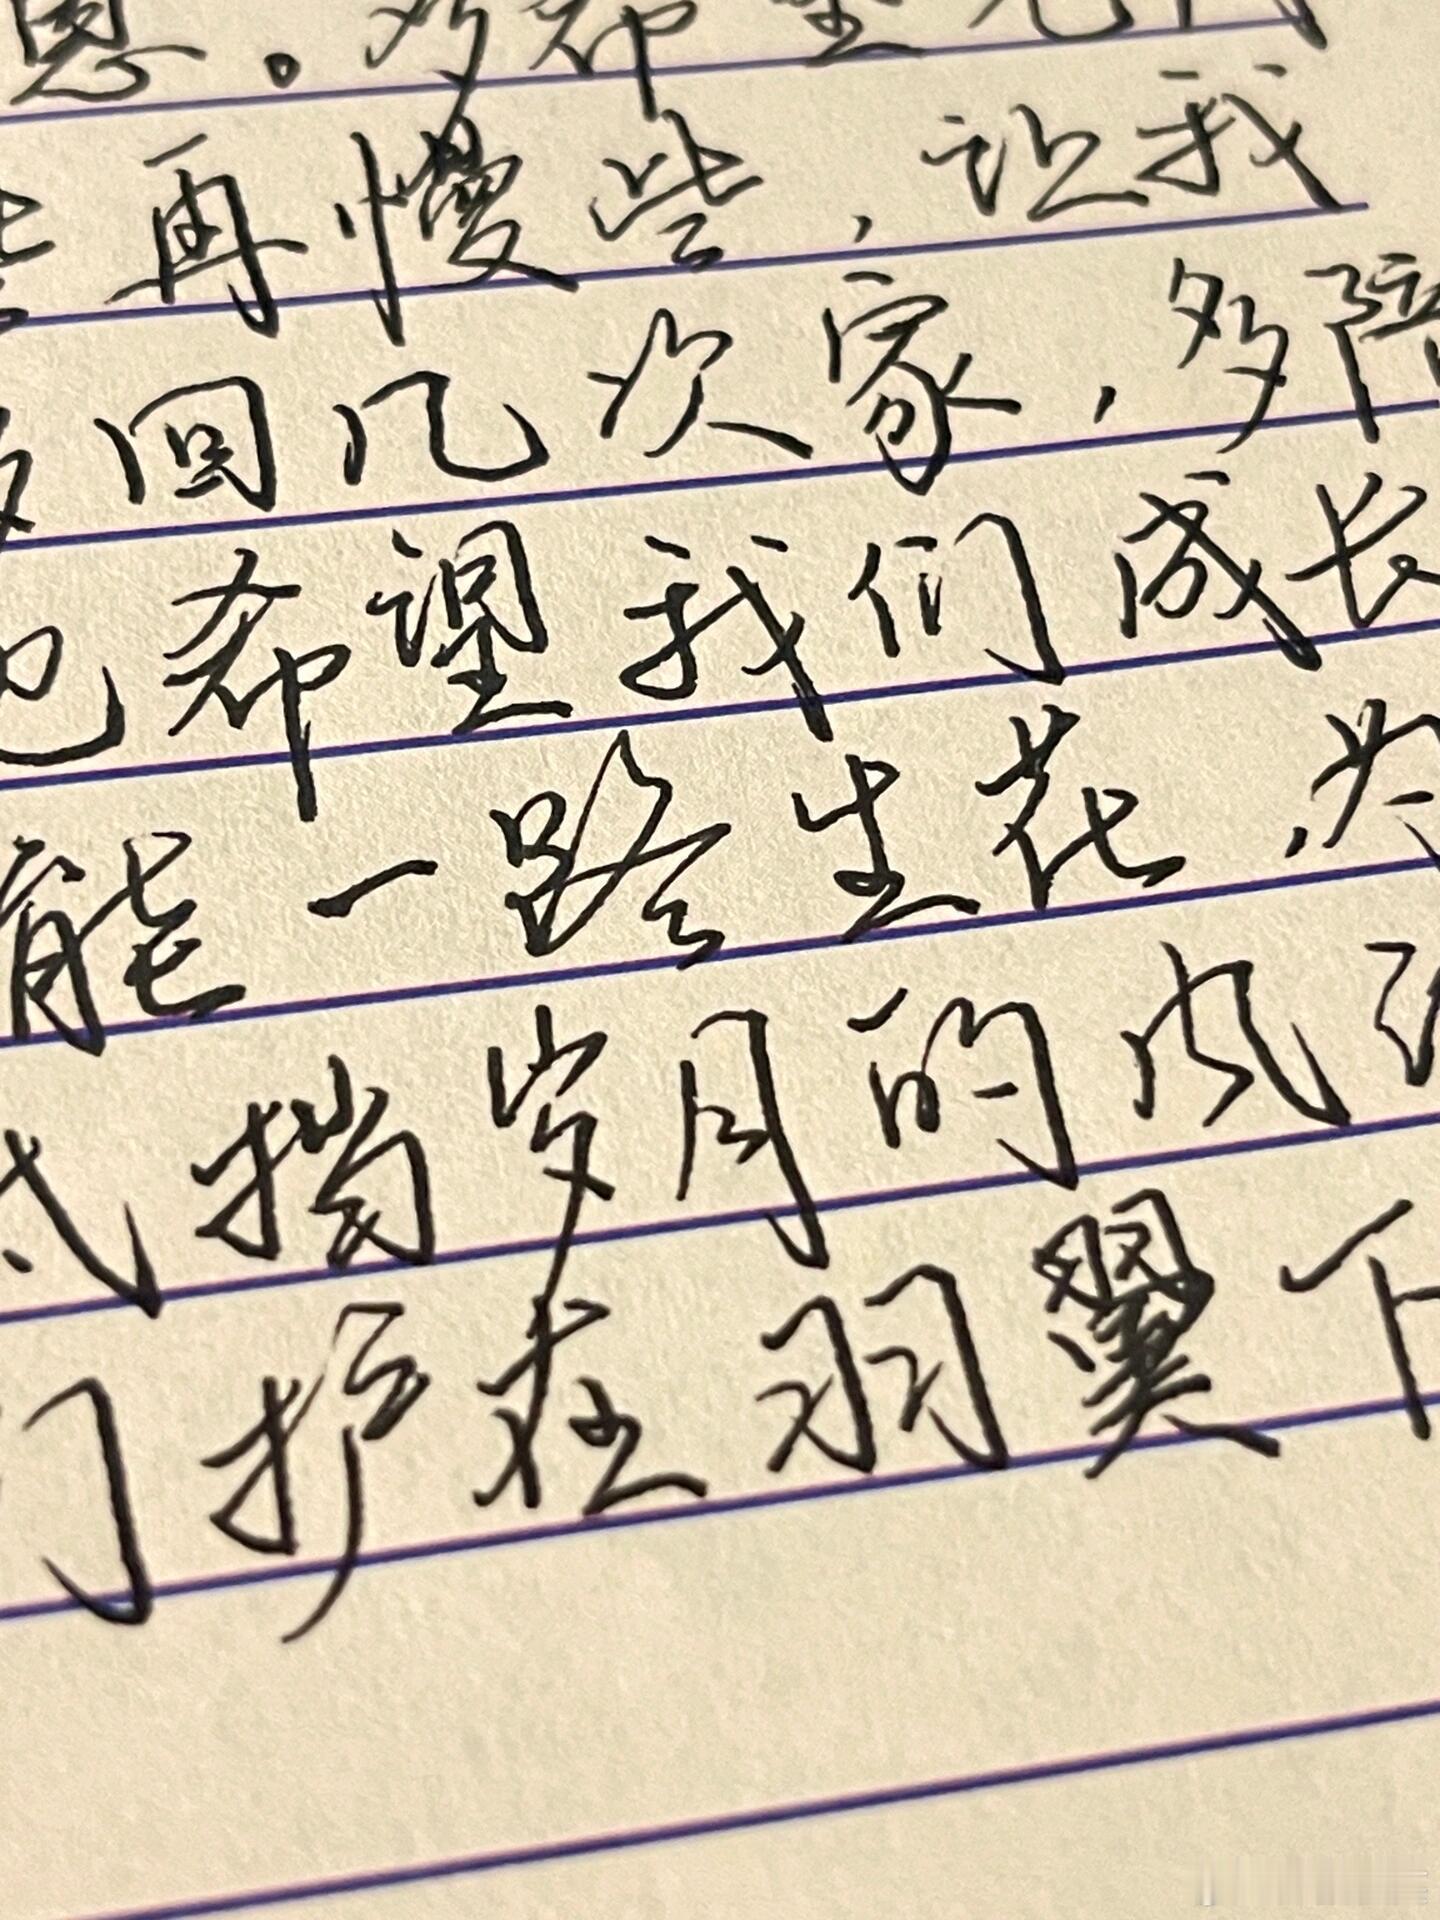 恩。多希望光
再慢些，让我
回几次家，多陪
也希望我们成长
能一路生花，为
挡岁月的风
们护在羽翼下